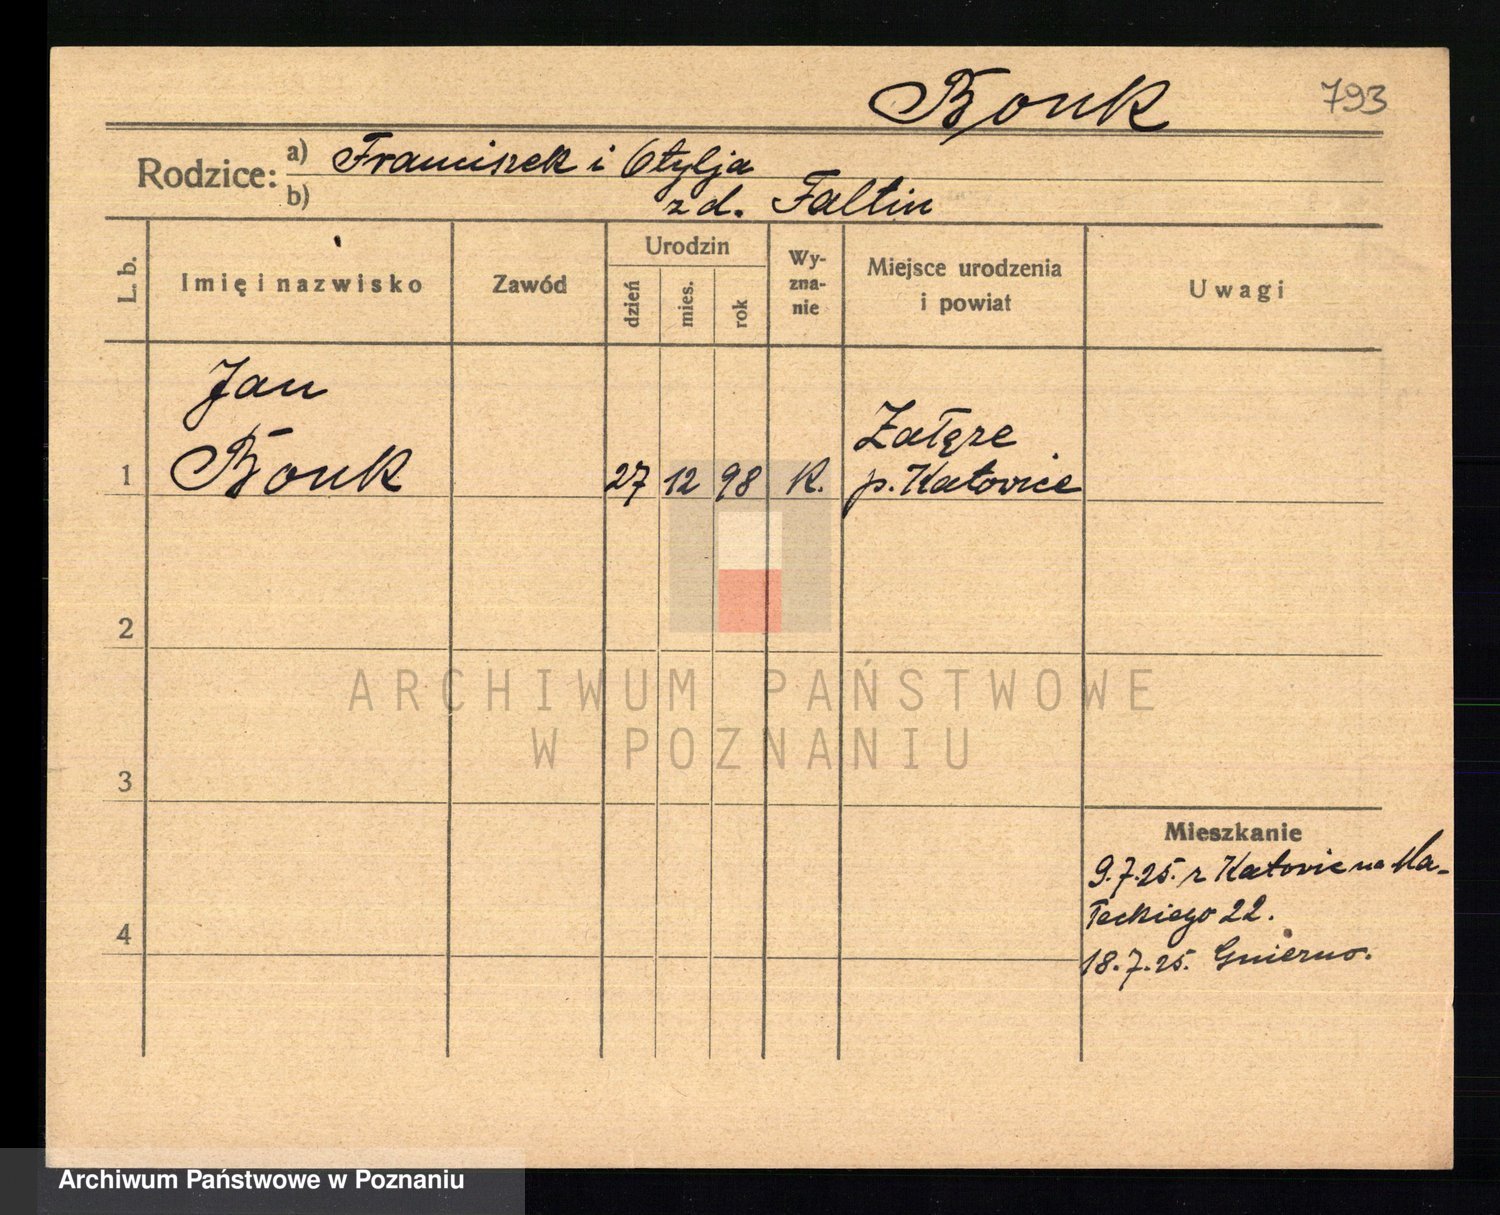 Bonk
793
Rodzice:
a) Franciszek i Otylja
b) zd. Faltin
L. b.
Imię i nazwisko
Zawód
Urodzin
dzień
mies.
rok
Wy-
zna-
nie
Miejsce urodzenia
i powiat
Uwagi
Jan
Bonk
1
27
12
98
K.
Załęże
p. Katowice
2
3
4
Mieszkanie
9.7.25. z Katowic na Ma-
łeckiego 22.
18.7.25. Gniezno.
ARCHIWUM PAŃSTWOWE
W POZNANIU
Archiwum Państwowe w Poznaniu